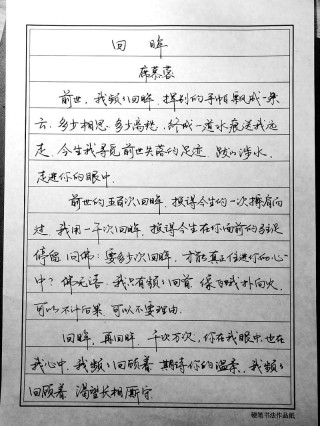 回眸
席慕蓉
前世，我频频回眸，挥别的手帕飘成一朵
云，多少相思，多少离愁，终成一道水痕送我远
走，今生我寻觅前世失落的足迹，跋山涉水，
走进你的眼中。
前世的五百次回眸，换得今生的一次擦肩而
过，我用一千次回眸，换得今生在你面前的驻足
停留，问佛：要多少次回眸，才能真正住进你的心
中？佛无语，我只有频频回首，像飞蛾扑向火，
可以不计后果，可以不要理由。
回眸，再回眸，千次万次，你在我眼中，也在
我心中，我频频回顾着，期待你的温柔，我频频
回顾着，渴望长相厮守。
硬笔书法作品纸